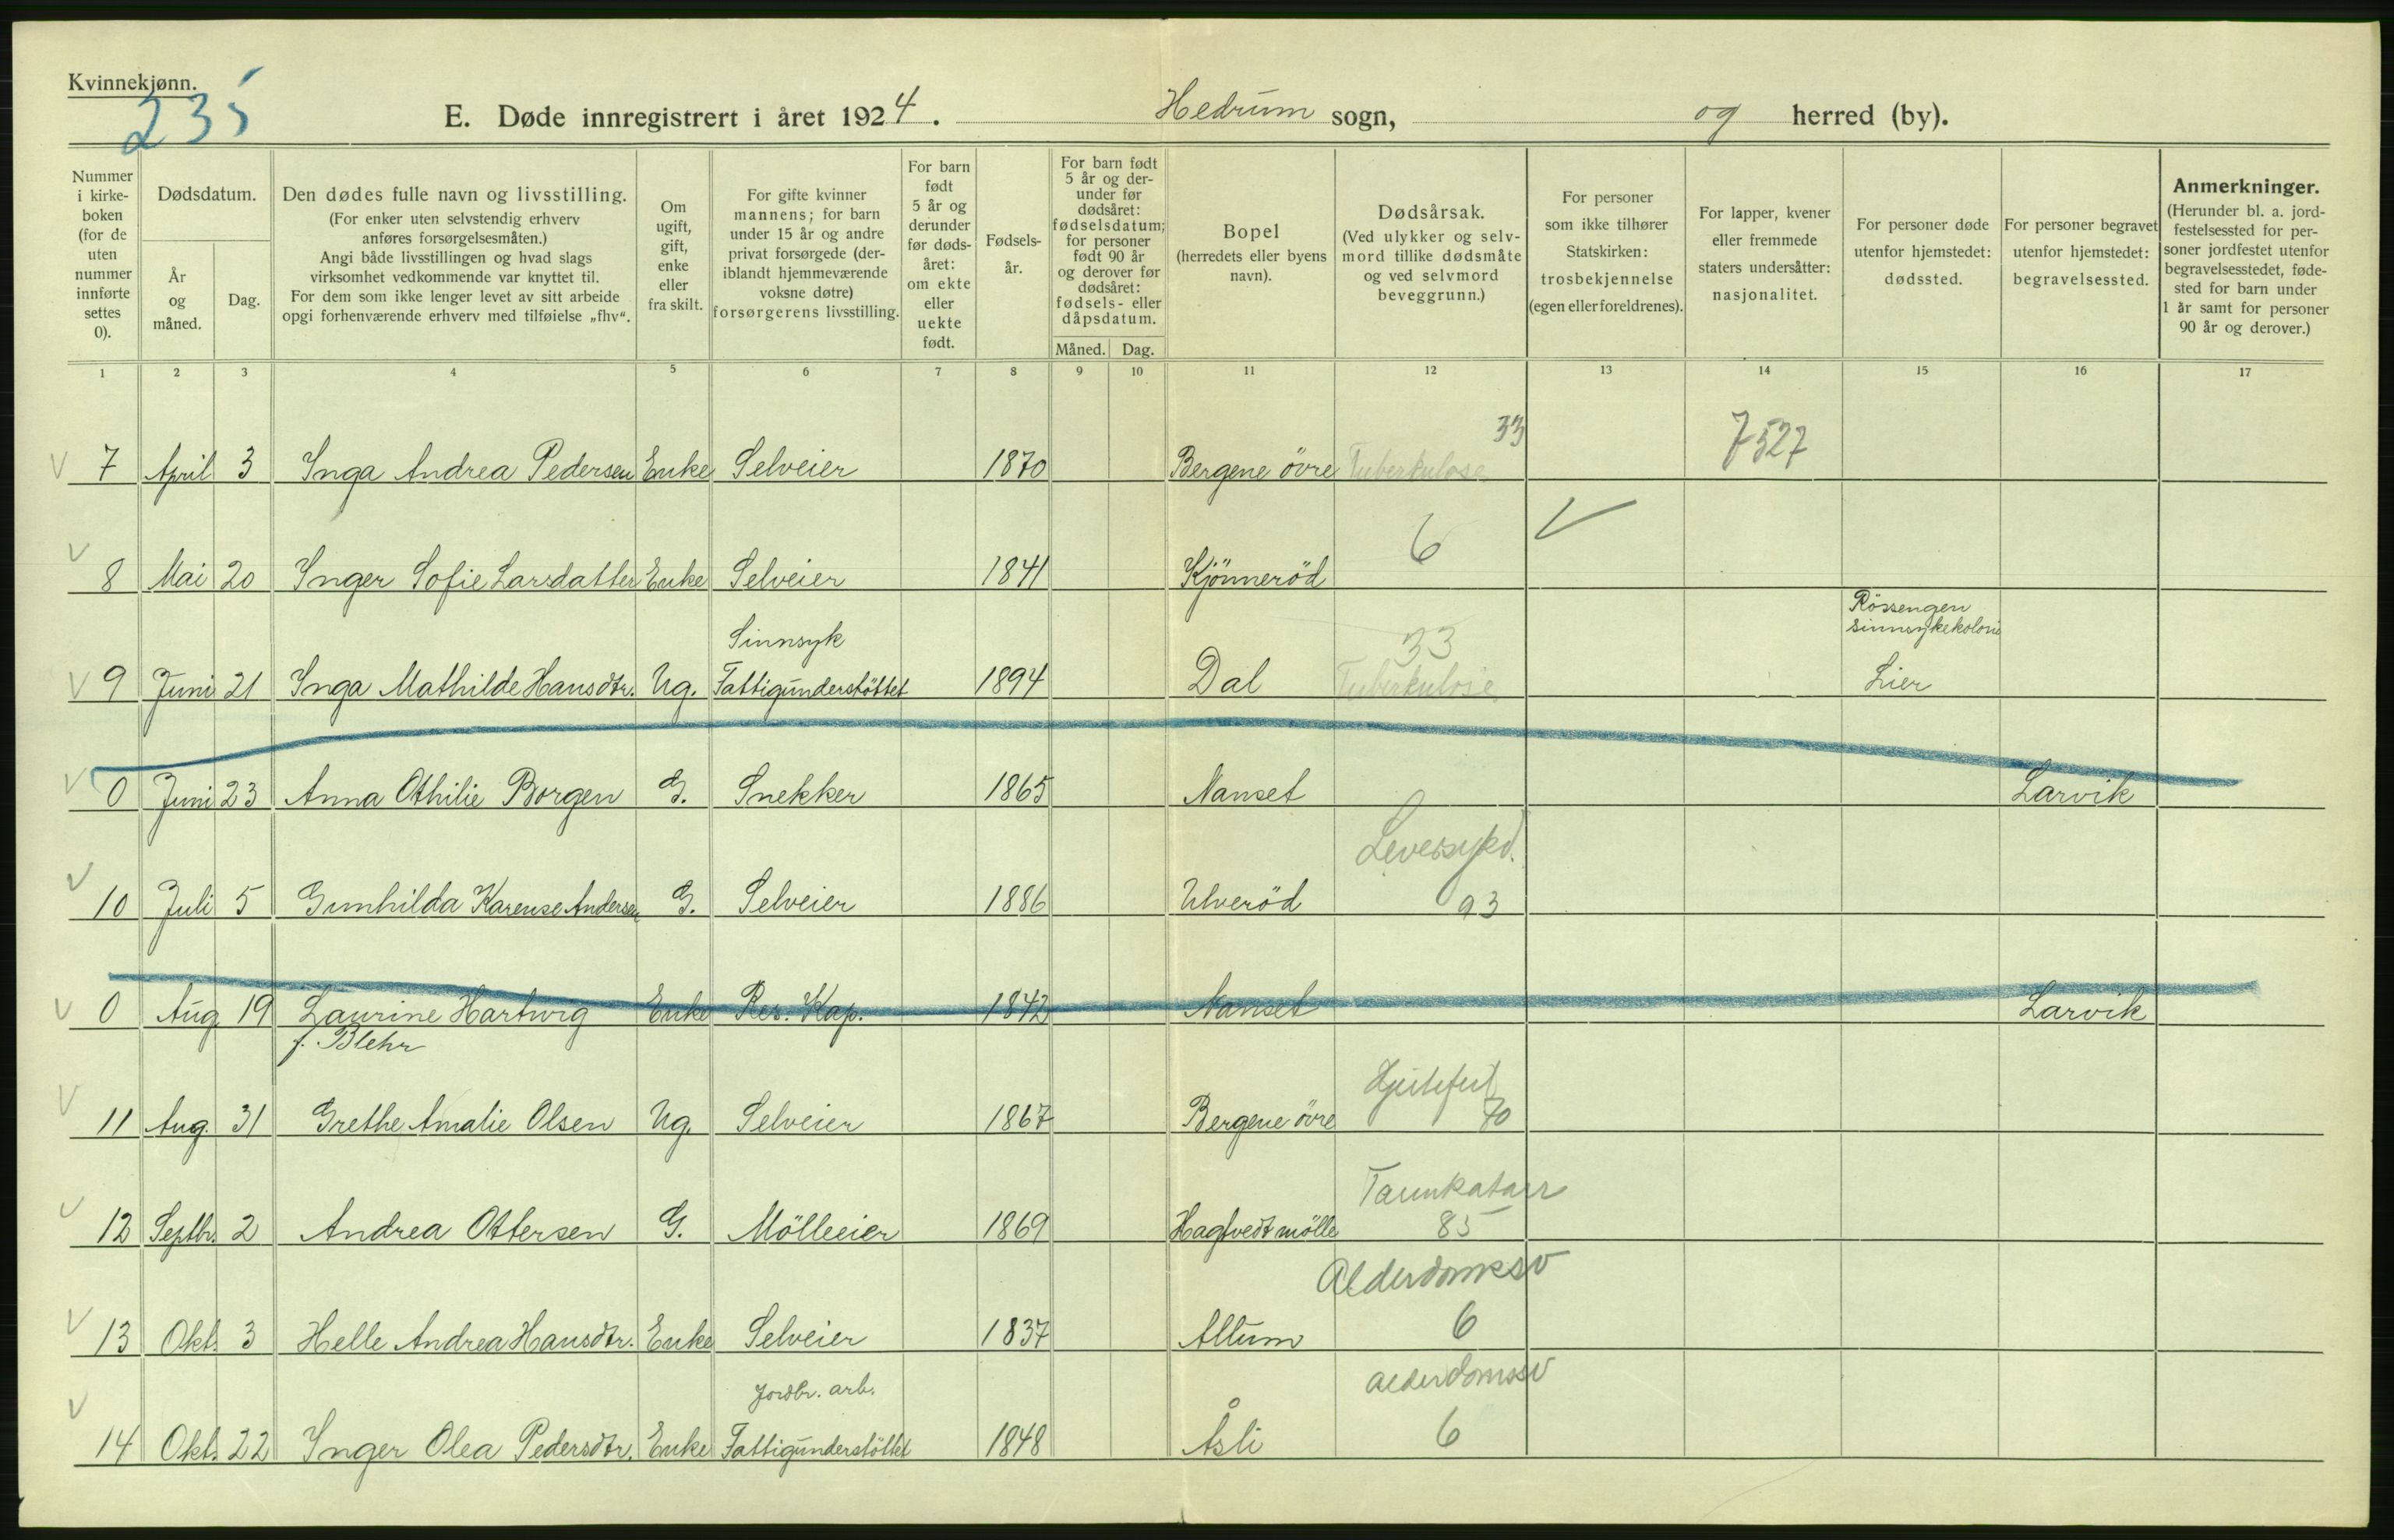 Kvinnekjønn.
235
E. Døde innregistrert i året 1924. Hedrum sogn, og herred (by).
Nummer i kirke-
boken
(for de
uten
nummer
innførte
settes
0).
Dødsdatum.
År
og
måned.
Dag.
Den dødes fulle navn og livsstilling.
(For enker uten selvstendig erhverv
anføres forsørgelsesmåten.)
Angi både livsstillingen og hvad slags
virksomhet vedkommende var knyttet til.
For dem som ikke lenger levet av sitt arbeide
opgi forhenværende erhverv med tilføielse „fhv“.
Om
ugift,
gift,
enke
eller
fra skilt.
For gifte kvinner
mannens; for barn
under 15 år og andre
privat forsørgede (der-
iblandt hjemmeværende
voksne døtre)
forsørgerens livsstilling.
For barn
født
5 år og
derunder
før døds-
året:
om ekte
eller
uekte
født.
Fødsels-
år.
For barn født
5 år og der-
under før
dødsåret:
fødselsdatum;
for personer
født 90 år
og derover før
dødsåret:
fødsels- eller
dåpsdatum.
Måned. Dag.
Bopel
(herredets eller byens
navn).
Dødsårsak.
(Ved ulykker og selv-
mord tillike dødsmåte
og ved selvmord
beveggrunn.)
For personer
som ikke tilhører
Statskirken:
trosbekjennelse
(egen eller foreldrenes).
For lapper, kvener
eller fremmede
staters undersåtter:
nasjonalitet.
For personer døde
utenfor hjemstedet:
dødssted.
For personer begravet
utenfor hjemstedet:
begravelsessted.
Anmerkninger.
(Herunder bl. a. jord-
festelsessted for per-
soner jordfestet utenfor
begravelsesstedet, føde-
sted for barn under
1 år samt for personer
90 år og derover.)
1 2 3 4 5 6 7 8 9 10 11 12 13 14 15 16 17
33 7527
V 7 April 3 Inga Andrea Pedersen Enke Selveier 1870 Bergene övre Tuberkulose
V 6 ✓
8 Mai 20 Inger Sofie Larsdatter Enke Selveier 1841 Kjönneröd
Rössengen
Sinnsyk 33 sinnsykekoloni
V 9 Juni 21 Inga Mathilde Hansdtr. Ug. Fattigunderstöttet 1894 Dal Tuberkulose Lier
V 0 Juni 23 Anna Othilie Borgen G. Snekker 1865 Nanset Larvik
V Leversykd.
10 Juli 5 Gunhilda Karense Andersen G. Selveier 1886 Ulveröd 93
V 0 Aug 19 Laurine Hartwig Enke Res. Kap. 1842 Nanset Larvik
f. Blehr
V Hjertefeil
11 Aug. 31 Grethe Amalie Olsen Ug. Selveier 1867 Bergene övre 70
V Tarmkatarr
12 Septbr. 2 Andrea Ottersen G. Mölleeier 1869 Hagtvedt mölle 85
V Alderdomssv
13 Okt. 3 Helle Andrea Hansdtr. Enke Selveier 1837 Allum 6
V Jordbr. arb. alderdomssv
14 Okt. 22 Inger Olea Pedersdtr. Enke Fattigunderstöttet 1848 Åsli 6